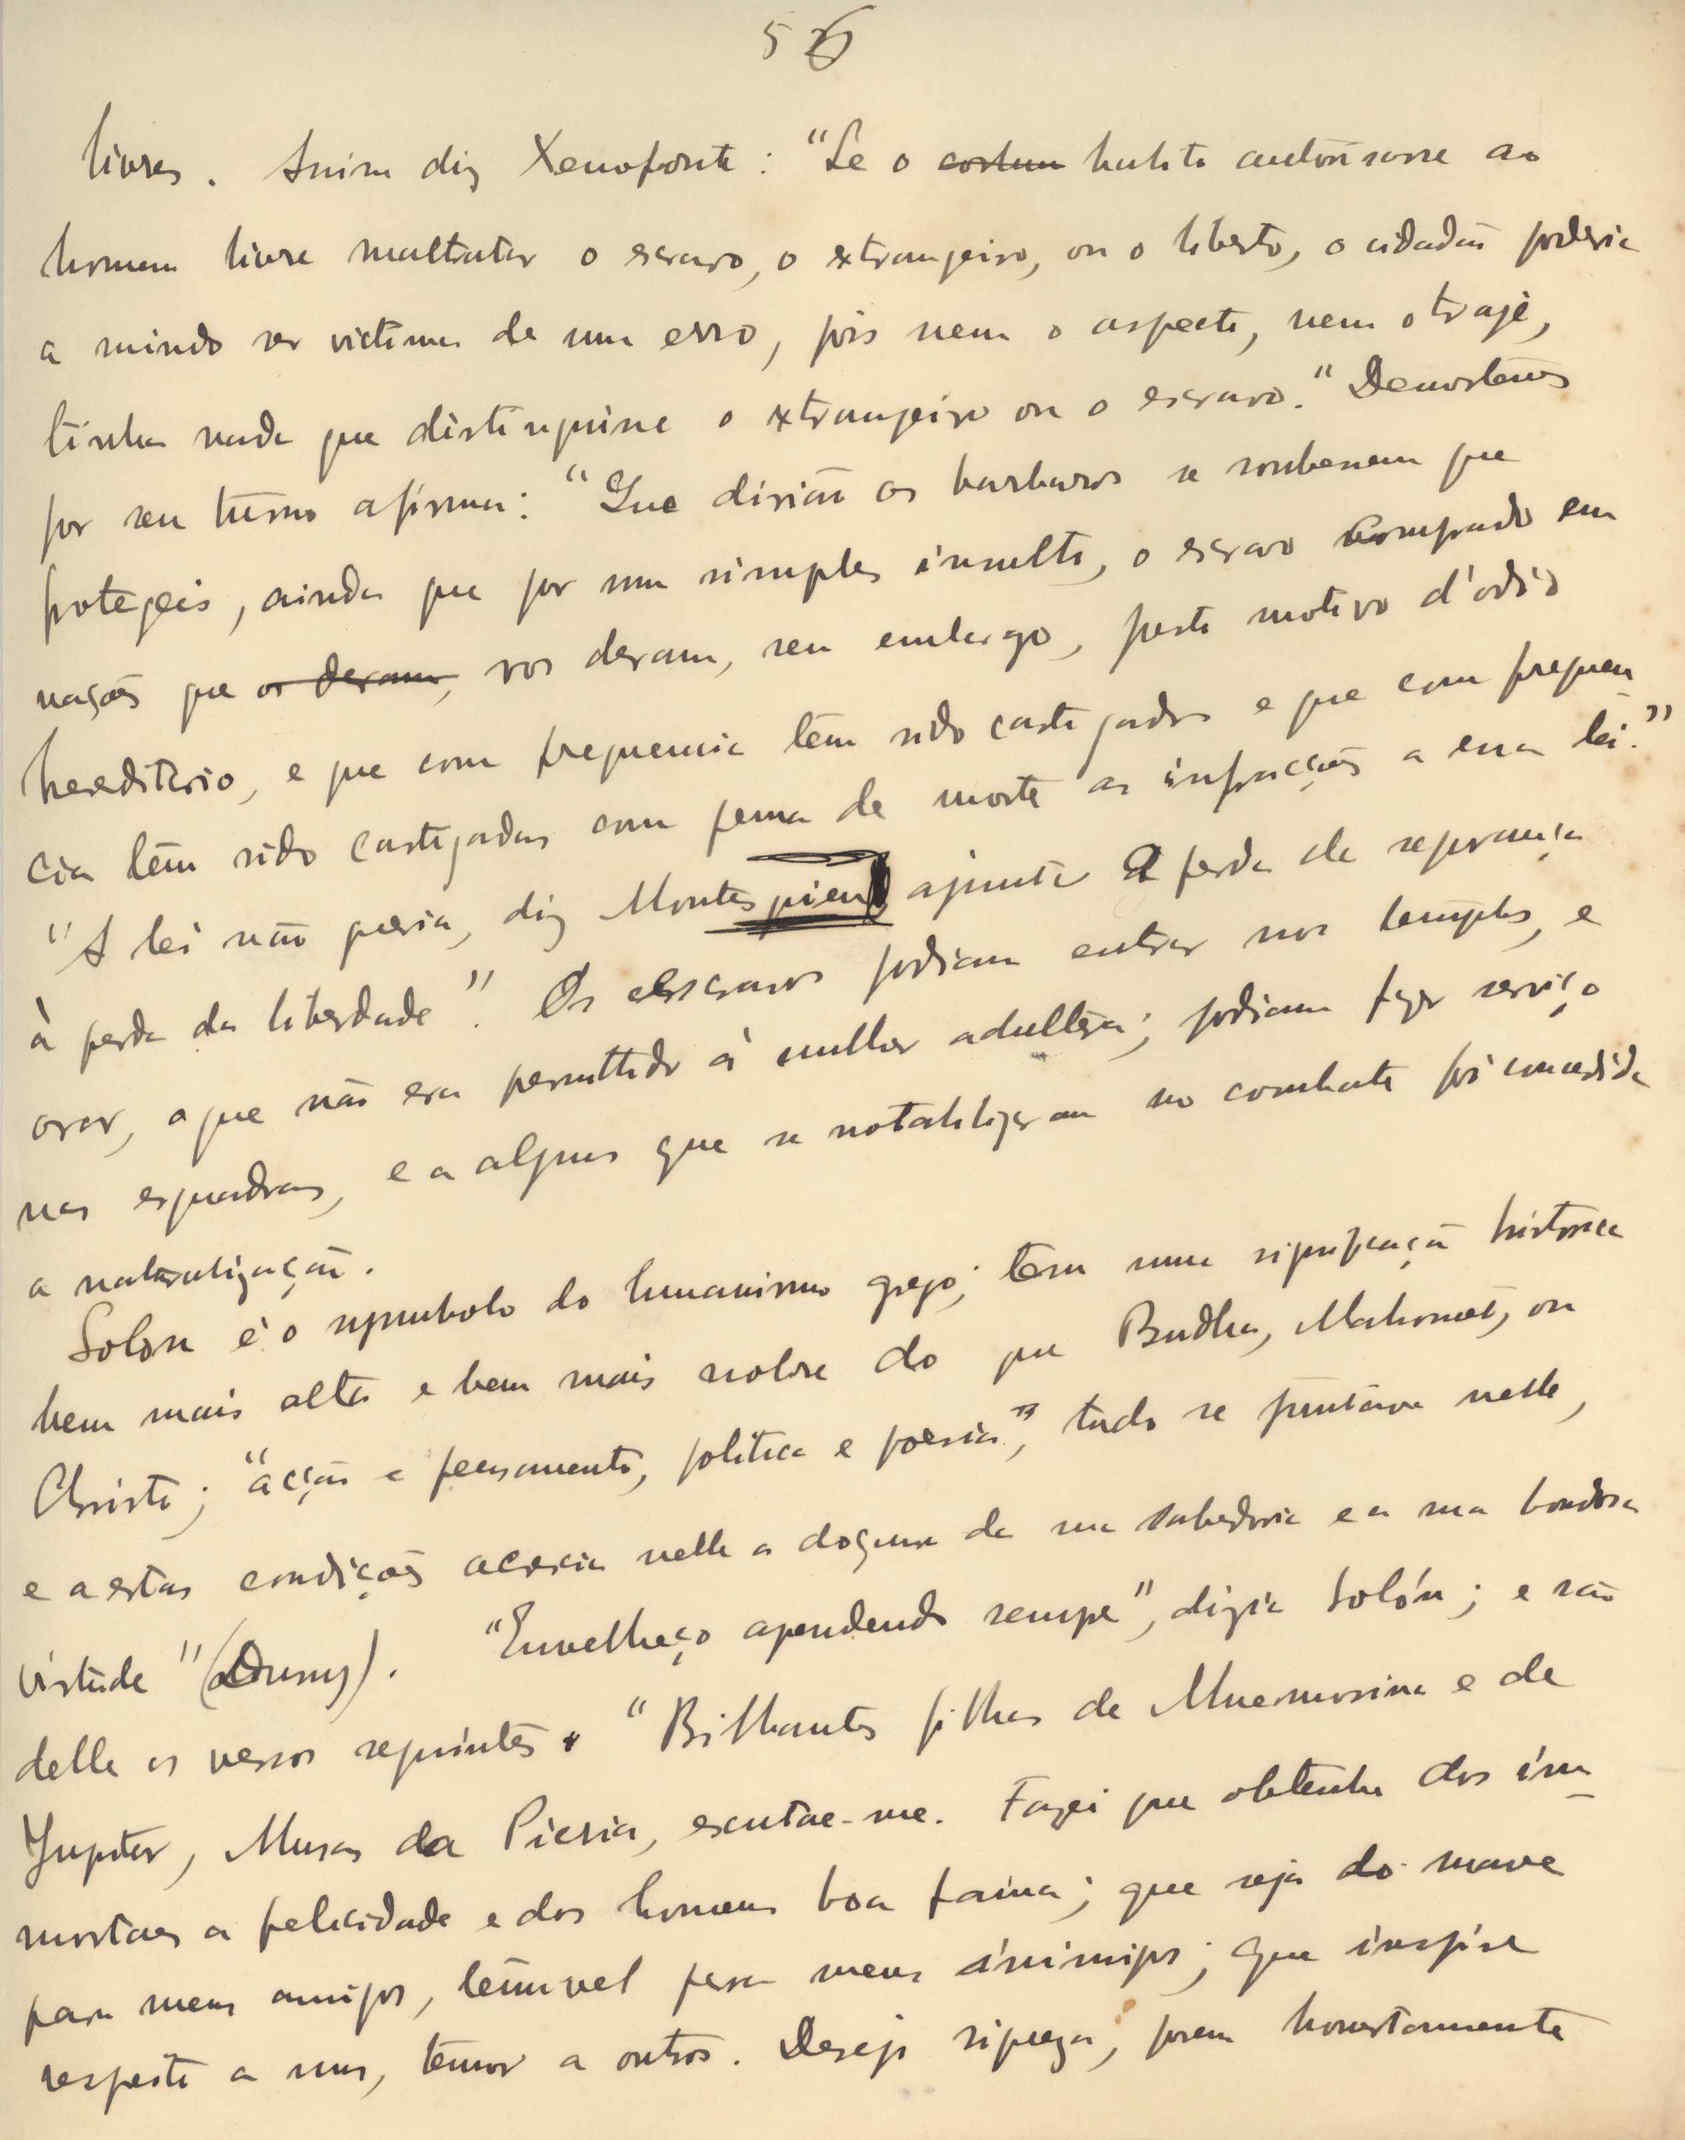 56
livres. Assim diz Xenofonte: "Se o costum habito autorisasse ao
homem livre maltratar o escravo, o extrangeiro, ou o liberto, o cidadão poderia
a miudo ser victima de um erro, pois nem o aspecto, nem o traje,
tinha nada que distinguisse o extrangeiro ou o escravo." Demostenes
por seu turno afirma: "Que dirião os barbaros se soubessem que
protegeis, ainda que por um simples insulto, o escravo comprado em
nações que os deram, vos deram, sem embargo, justo motivo d'odio
hereditario, e que com frequencia têm sido castigados e que com frequen
cia têm sido castigadas com pena de morte as infracções a essa lei."
"A lei não queria, diz Montesquieu ajuntar a perda da segurança
à perda da liberdade". Os escravos podiam entrar nos templos, e
orar, o que não era permittido á mulher adultera; podiam fazer serviço
nas esquadras, e a alguns que se notabilizaram no combate foi concedida
a naturalização.
Solon é o symbolo do humanismo grego; tem uma significação historica
bem mais alta e bem mais nobre do que Budha, Mahomet, ou
Christo; "acção e pensamento, politica e poesia", tudo se juntava nelle,
e a estas condições acrescia nelle a doçura da sua sabedoria e a sua bondosa
virtude" (Duruy). "Envelheço aprendendo sempre", dizia Solón; e são
delle os versos seguintes. "Bilhantes filhas de Mnemosina e de
Jupiter, Musas da Pieria, escutae-me. Fazei que obtenha dos im-
mortaes a felicidade e dos homens boa fama; que seja do suave
para meus amigos, temivel para meus inimigos; que inspire
respeito a uns, temor a outros. Desejo riqueza, porem honestamente